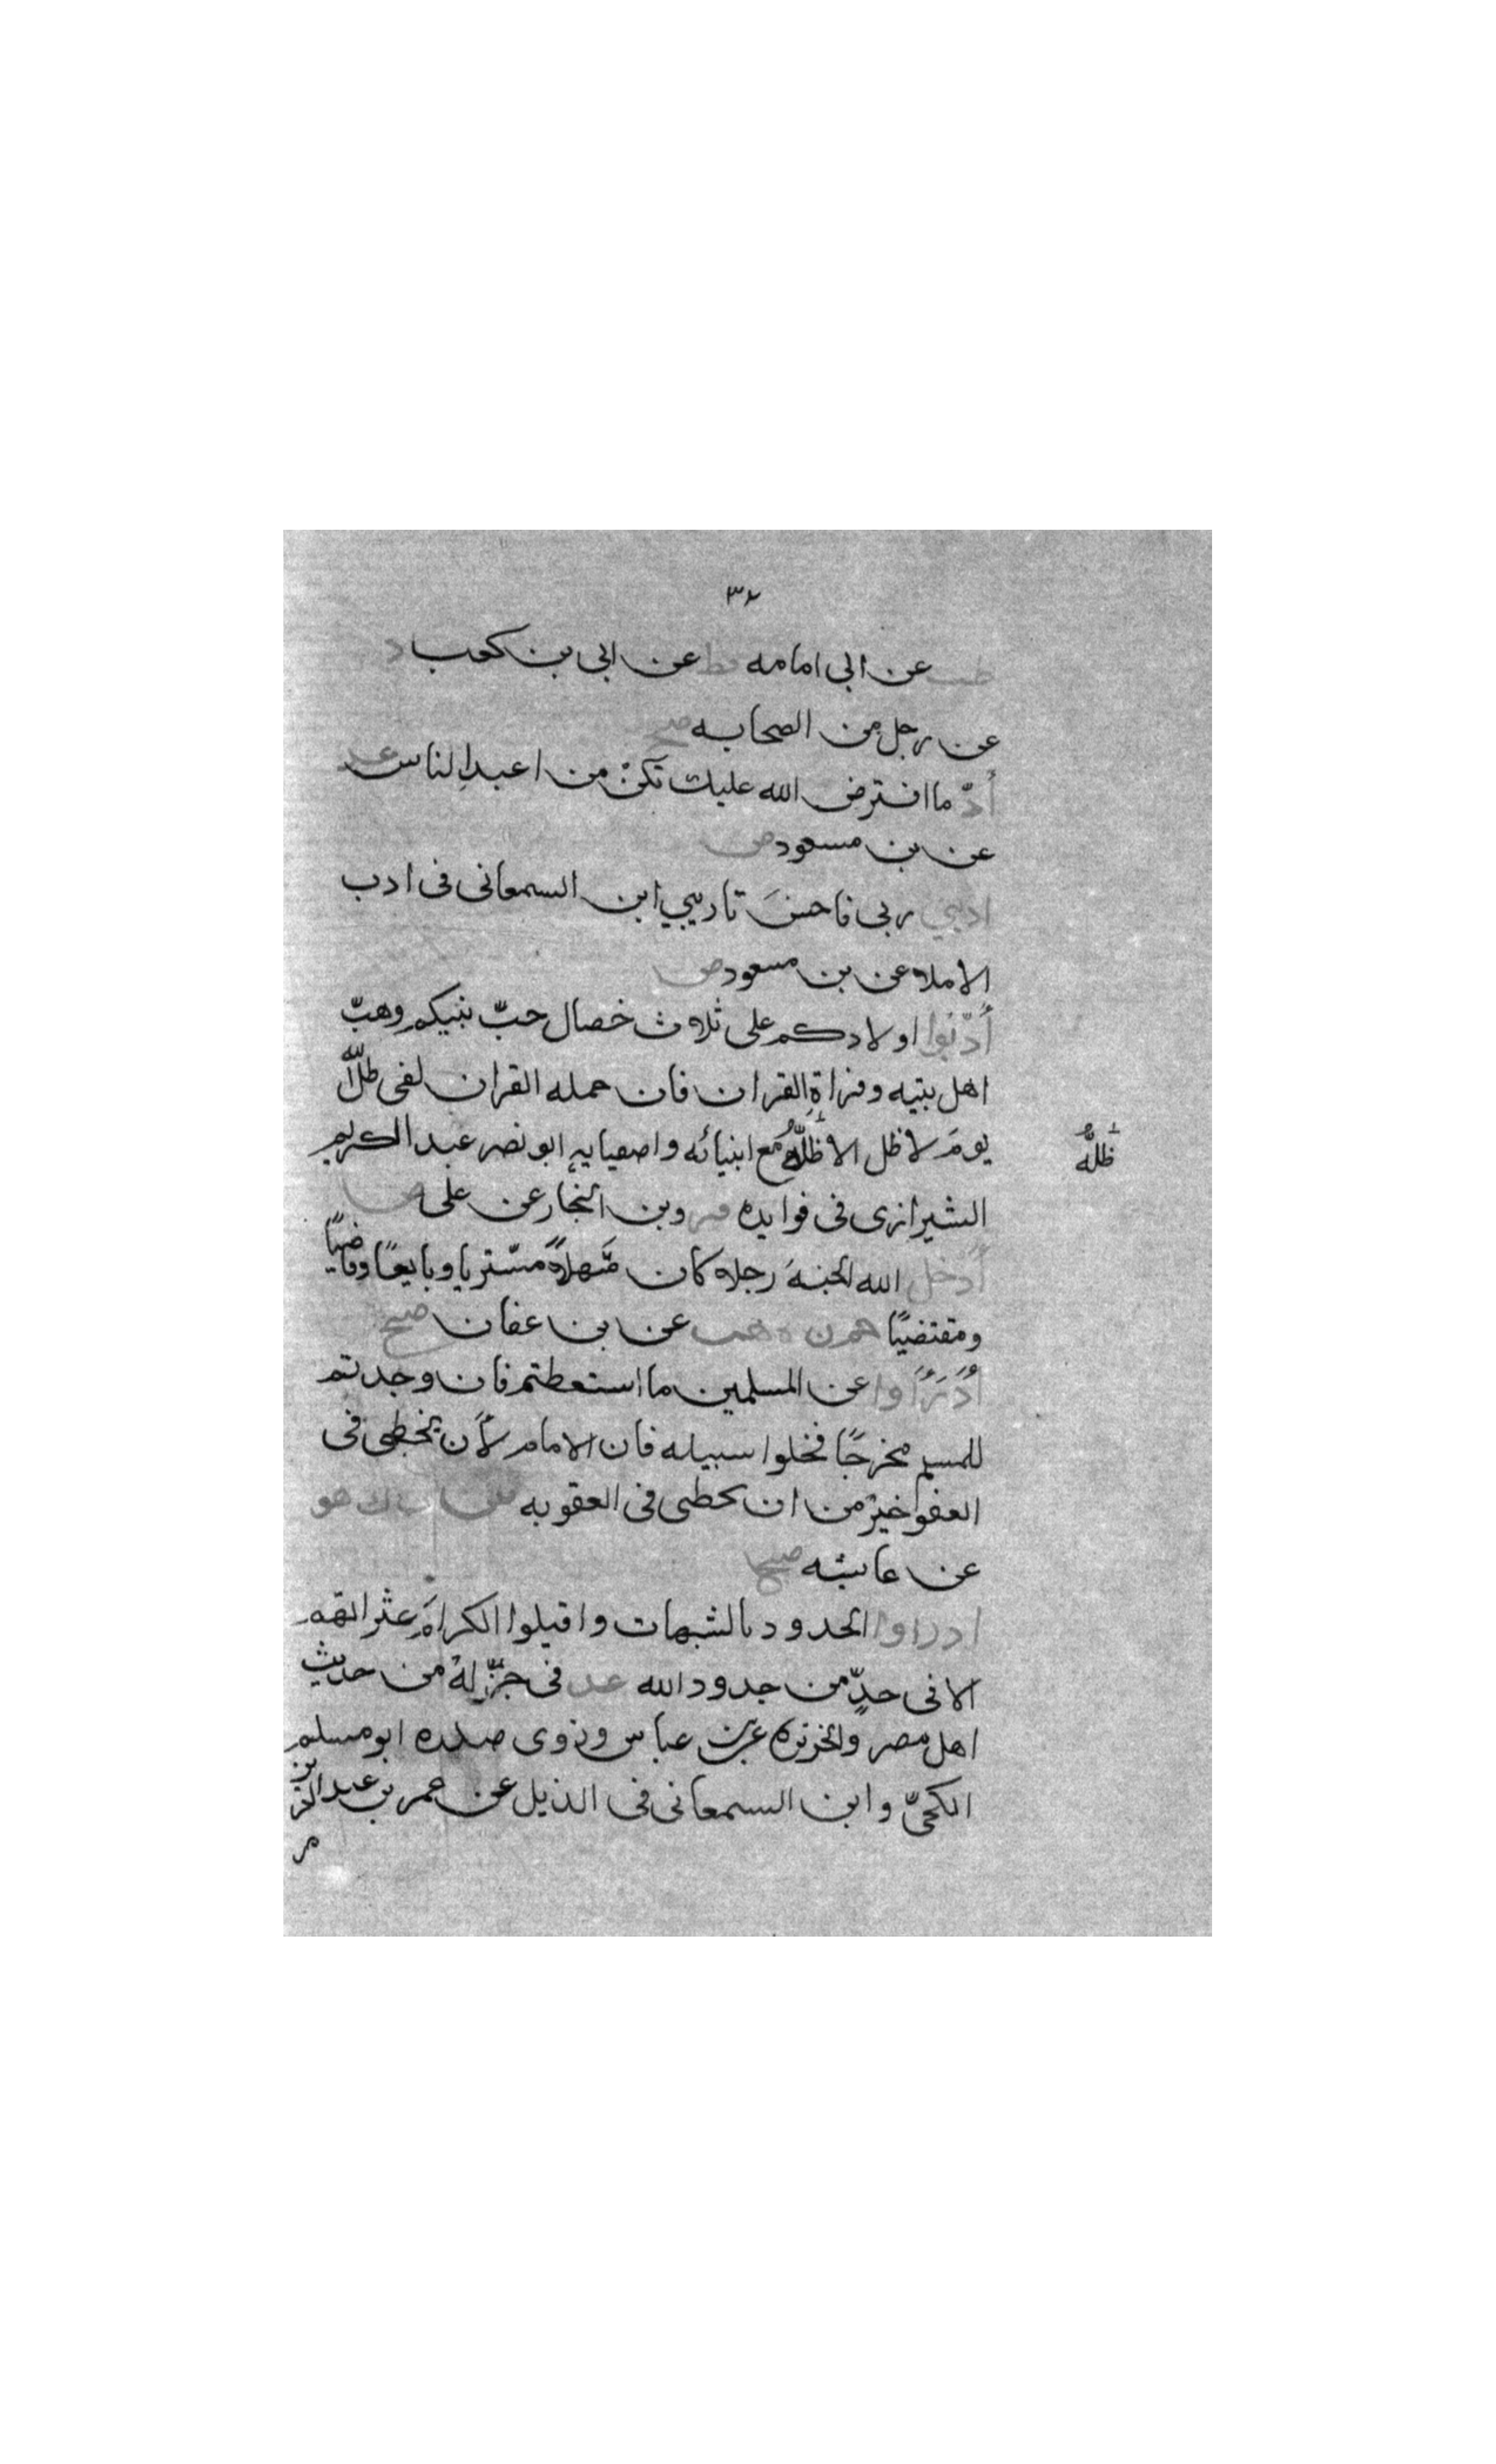 ٣٢
طب عن ابى امامه قط عن ابى بن كعب د
عن رجل من الصحابه صح
أدّ ما افترض الله عليك تكنْ من اعبدِ الناس عد
عن بن مسعود ض
ادبني ربى فاحسَن تاديبي ابن السمعانى فى ادب
الاملاء عن بن مسعود ض
أدّبوا اولادكم على ثلاث خصال حبّ نبيكم وحبّ
اهل بيته وقراةِ القران فان حمله القران لفى ظلّ الله
يومَ لا ظل الا ظلُّه مع انبيائه واصفيايه ابو نصر عبد الكريم
ظلُّه
الشيرازى فى فوايده فر وبن النجار عن على ض
أدخل الله الجنهَ رجلا كان سَهلاً مشتريا وبايعًا وقاضيًا
ومقتضيًا حم ن ه هب عن بن عفان صح
أدْرَأُوا عن المسلمين ما استعطتم فان وجدتم
للمسلم مخرجًا فخلوا سبيله فان الامام لأن يخطى فى
العفو خيرٌ من ان يخطى فى العقوبه ك هق
عن عايشه صح
ادراوا الحدود بالشبهات واقيلوا الكرامَ عثراتهم
الا فى حدٍّ من حدود الله عد فى جزّ لهْ من حديث
اهل مصر والجزيره عن بن عباس وروى صدره ابو مسلم
الكجىّ وابن السمعانى فى الذيل عن عمر بن عبد العزيز
م